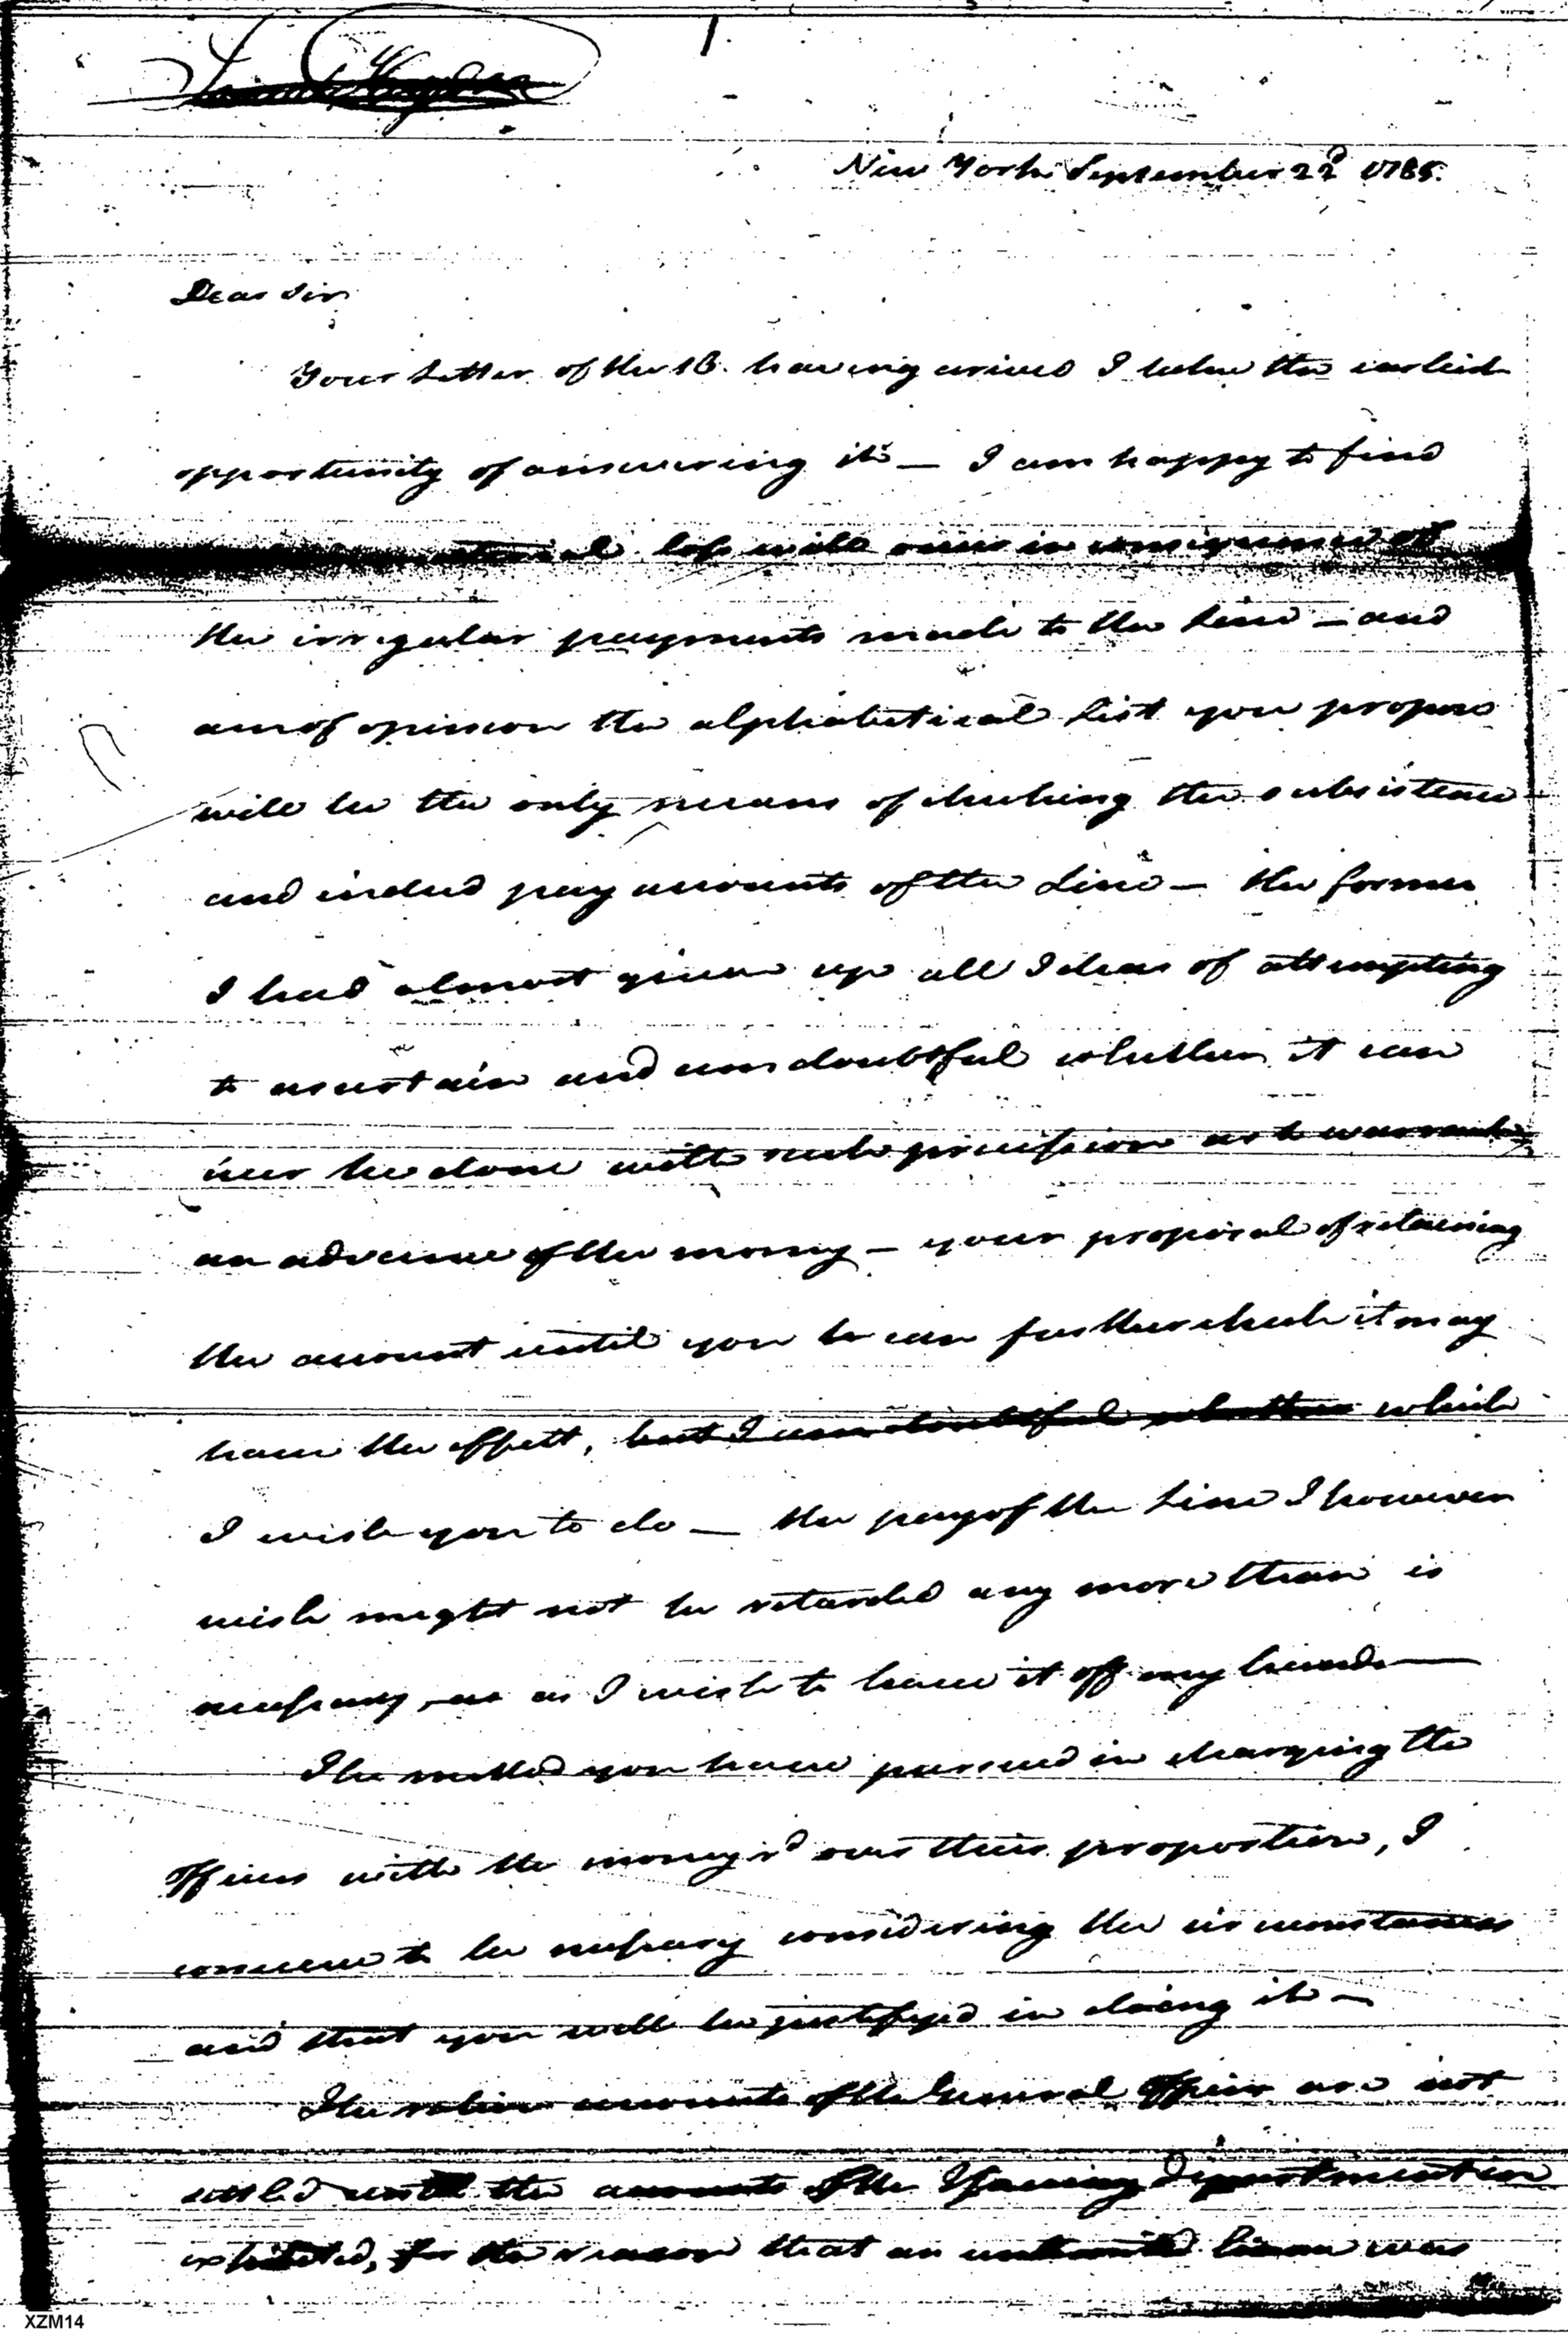 1
New York September 22d 1785.
Dear Sir
Your Letter of the 13. having arived I take the earliest
opportunity of answering it — I am happy to find
material loss will arise in consequence of
the irregular payments made to the Line — and
am of opinion the alphabetical List you propose
will be the only means of checking the subsistence
and indeed pay accounts of the Line — the former
I had almost given up all Ideas of attempting
to ascertain and am doubtful whether it can
ever be done with such precission as to warrant
an advance of the money — your proposal of retaining
the amount until you can further check it may
have the effect, but I am doubtful whether which
I wish you to do — the pay of the Line I however
wish might not be retarded any more than is
necessary as I wish to have it off my hands —
The method you have pursued in charging the
officers with the money rd over their proportion, I
conceive to be necessary considering the circumstances
and that you will be justifyed in doing it —
The ration accounts of the General Officers are not
settled until the accounts of the Issueing Department are
exhibited, for the reason that an was
XZM14